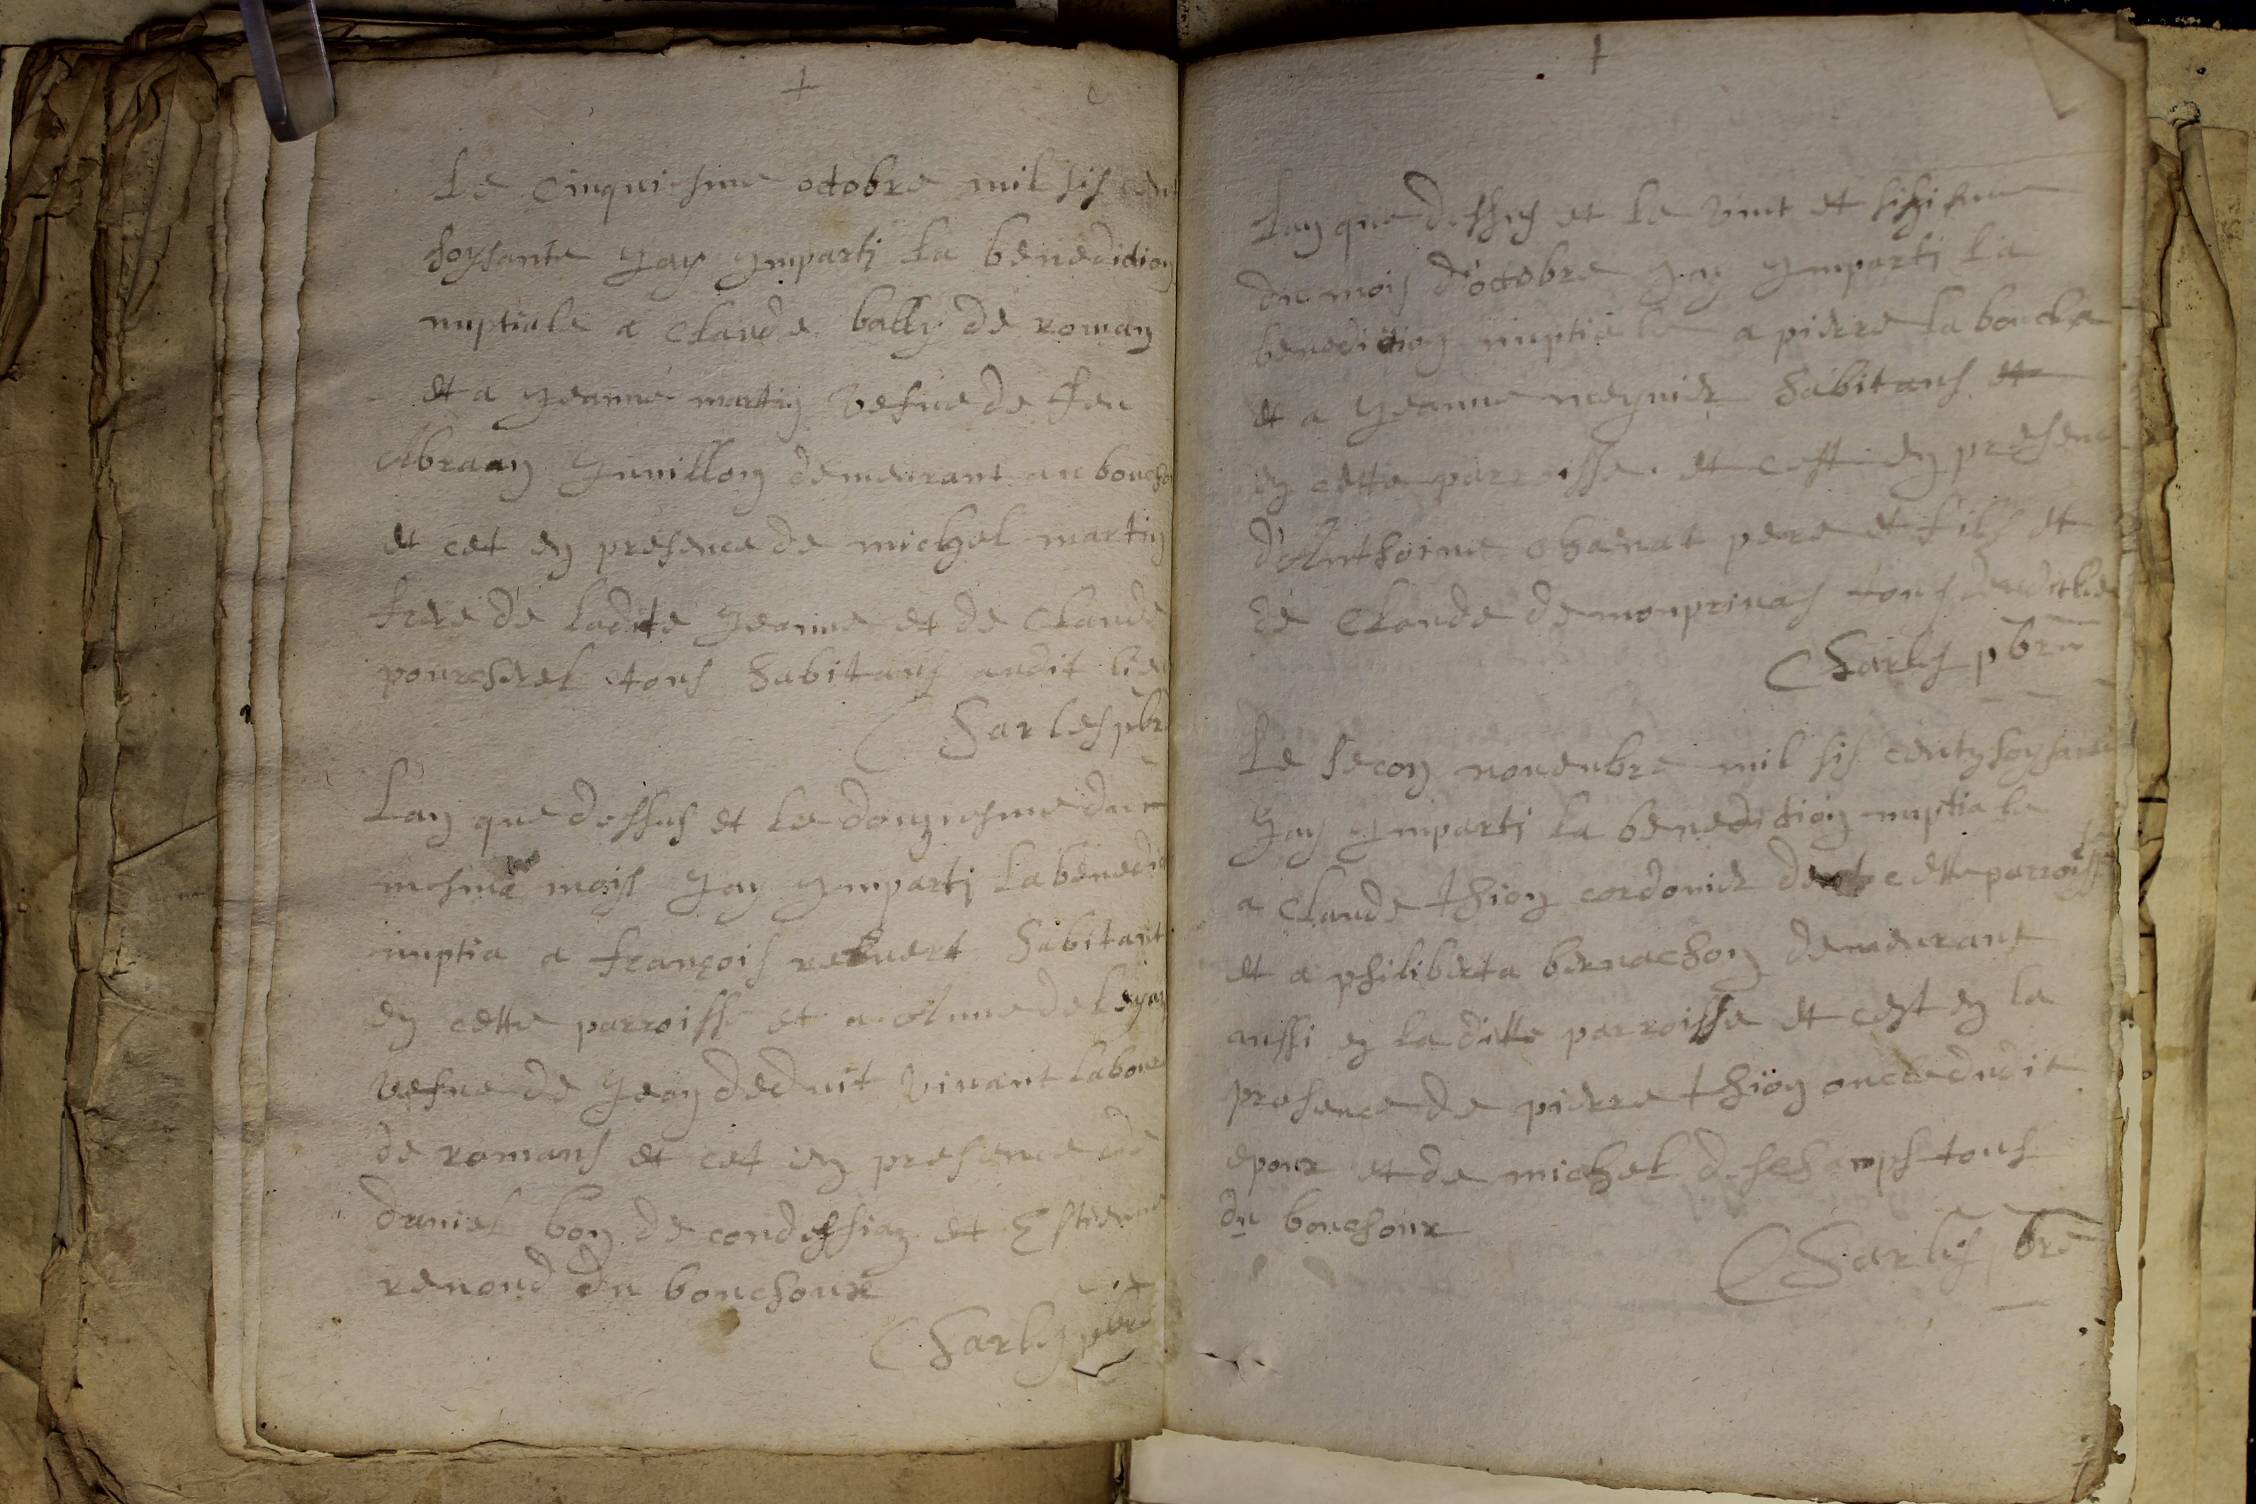 Le cinquiesme octobre mil sis cent
soysante Jay Imparti la benediction
nuptiale a claude bally de roman
et a Jeanne martin vefue de feu
Abraan Guuillon demeurant au boucho
et cet en presence de michel martin
frere de ladite Jeanne et de claude
pourcherel tous habitans audit lieu
Charles pbre
Lan que dessus et le douziesme du
mesme mois Jay Imparti la benedic
nuptia a françois reuuert habitant
en cette parroisse et a Anne de
vefue de Jean deduit viuant laboure
de romans et cet en presence de
daniel bon de condessiaz et Estienne
renond du bouchoux
Charles pbre
Lan que dessus et le vint et sisiesme
du mois d'octobre Jay Imparti la
benediction nuptiale a pierre la boucla
et a Jeanne meynier habitans et
en cette parroisse. et cest en presence
d'Anthoine chanat pere et fils et
de claude de monprinas tous dudit lieu
Charles pbre
Le secon nouenbre mil sis centz soysante
Jay Imparti la benediction nuptiale
a claude thion cordonier de cette parroisse
et a philiberta bernachon demeurant
aussi en la ditte parroisse et cest en la
presence de pierre thion oncle dudit
epoux et de michel deschamps tous
du bouchoux
Charles pbre